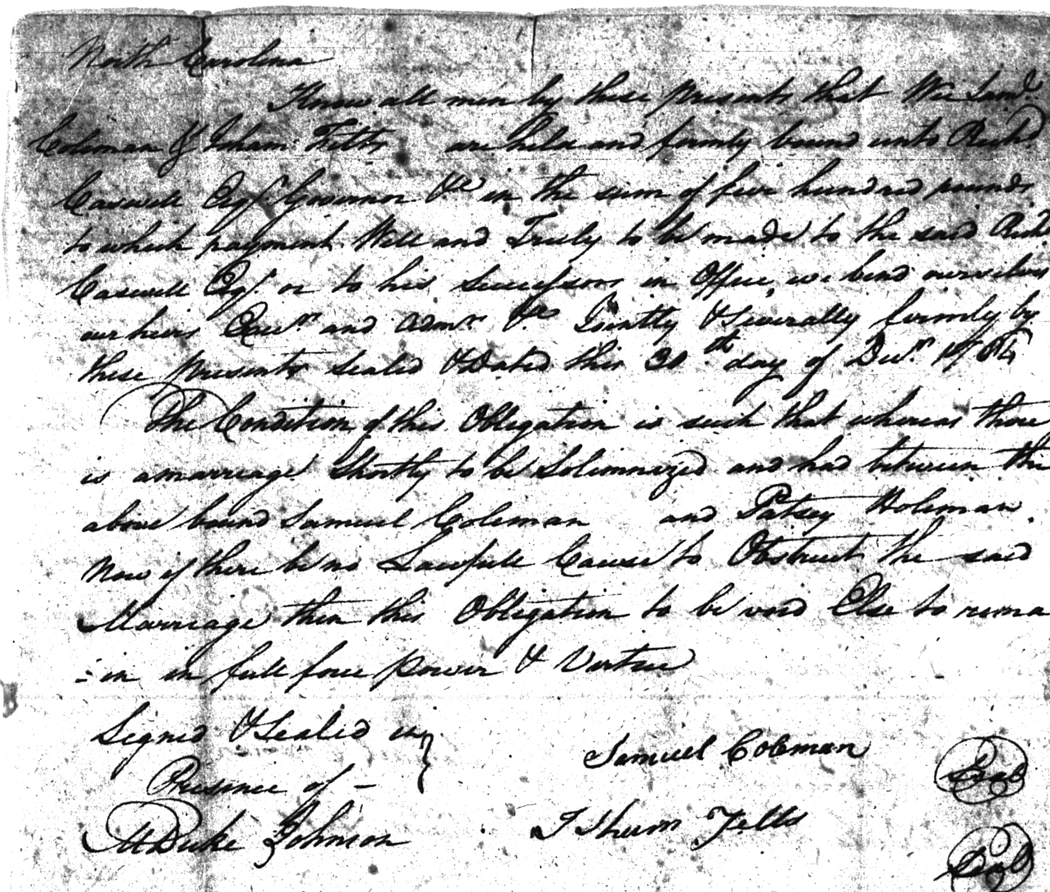 North Carolina
Know all men by these presents that We Saml
Coleman & Isham Felts are held and firmly bound unto Richd
Caswell Esqr Governor &c in the sum of five hundred pounds
to which payment Well and Truly to be made to the said Richd
Caswell Esqr or to his Successors in Office, we bind ourselves
our heirs Exers and admrs &c Jointly & Severally firmly by
these presents sealed & Dated this 30th day of Decr
The Condition of this Obligation is such that whereas there
is a marriage Shortly to be Solemnized and had between the
above bound Samuel Coleman and Patsey Holeman
Now if there be no Lawfull Cause to Obstruct the said
Marriage then this Obligation to be void Else to rema
=in in full force power & Virtue
Signed & Sealed in
Presence of -
M Duke Johnson
Samuel Coleman Seal
Isham Felts Seal